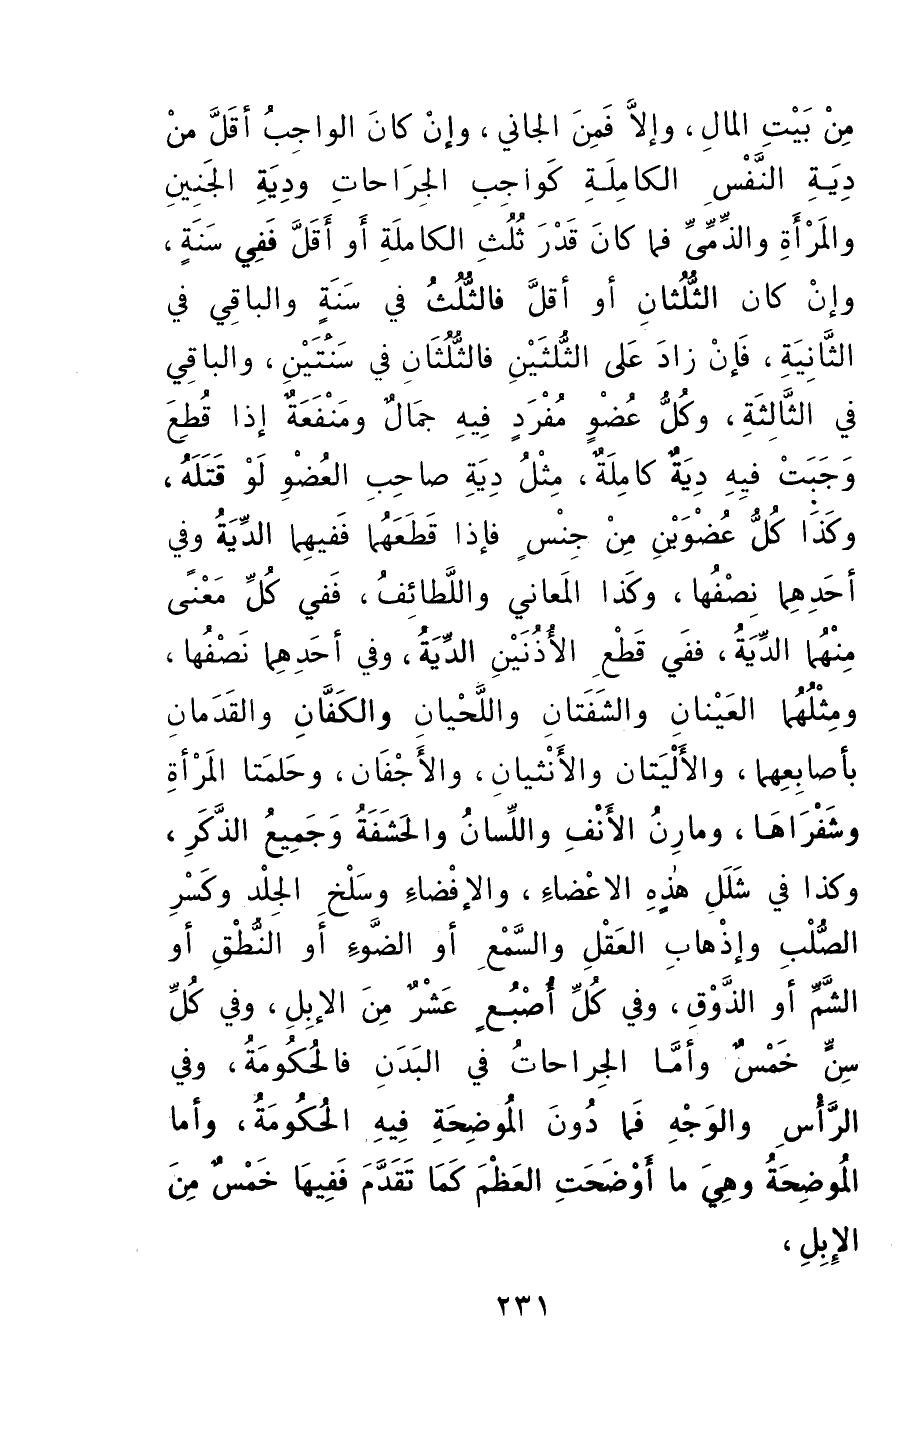 مِنْ بَيْتِ المالِ، وإلاَّ فَمِنَ الجاني، وإنْ كانَ الواجِبُ أقَلَّ منْ
دِيَةِ النَّفْسِ الكامِلَةِ كَواجِبِ الجِرَاحاتِ ودِيَةِ الجَنينِ
والمَرْأَةِ والذِّمِّيِّ فما كانَ قَدْرَ ثُلُثِ الكاملَةِ أو أَقَلَّ فَفِي سَنَةٍ،
وإنْ كان الثُّلُثانِ أو أقلَّ فالثُّلُثُ في سَنَةٍ والباقِي في
الثَّانِيَةِ، فَإنْ زادَ عَلى الثُّلثَيْنِ فالثُّلُثَانِ في سَنَتَيْنِ، والباقِي
في الثَّالِثَةِ، وكُلُّ عُضْوٍ مُفْرَدٍ فِيهِ جمَالٌ ومَنْفَعَةٌ إذا قُطِعَ
وَجَبَتْ فيهِ دِيَةٌ كامِلَةٌ، مِثْلُ دِيَةِ صاحِبِ العُضْوِ لَوْ قَتَلَهُ،
وكَذَا كُلُّ عُضْوَيْنِ مِنْ جِنْسٍ فإذا قَطَعَهُما فَفيهِما الدِّيَةُ وفي
أحَدِهِما نِصْفُها، وكَذا المَعاني واللَّطائِفُ، فَفي كُلِّ مَعْنًى
مِنْهُما الدِّيَةُ، ففَي قَطْعِ الأُذُنَيْنِ الدِّيَةُ، وفي أحَدِهِما نَصْفُها،
ومِثْلُهُما العَيْنانِ والشَفَتانِ واللَّحْيانِ والكَفَّانِ والقَدَمانِ
بأصابِعِهما، والأَلْيَتان والأَنْثيانِ، والأَجْفَان، وحَلمَتا المَرْأةِ
وشَفْرَاهَا، ومارِنُ الأَنْفِ واللِّسانُ والحَشَفَةُ وَجَمِيعُ الذَّكَرِ،
وكذا في شَلَلِ هٰذِهِ الاعْضاءِ، والإفْضاءِ وسَلْخِ الجِلْد وكَسْرِ
الصُّلْبِ وإذْهابِ العَقْلِ والسَّمْعِ أو الضَّوءِ أو النُّطْقِ أو
الشَّمِّ أو الذَّوْقِ، وفي كُلِّ أُصْبُعٍ عَشْرٌ مِنَ الإبِلِ، وفي كُلِّ
سِنٍّ خَمْسٌ وأمَّا الجِراحاتُ في البَدَنِ فالحُكُومَةُ، وفي
الرَّأْسِ والوَجْهِ فَما دُونَ المُوضِحَةِ فِيهِ الحُكُومَةُ، وأما
المُوضِحَةُ وهِيَ ما أَوْضَحَتِ العَظْمَ كَمَا تَقَدَّمَ فَفِيهَا خَمْسٌ مِنَ
الإِبِلِ،
٢٣١